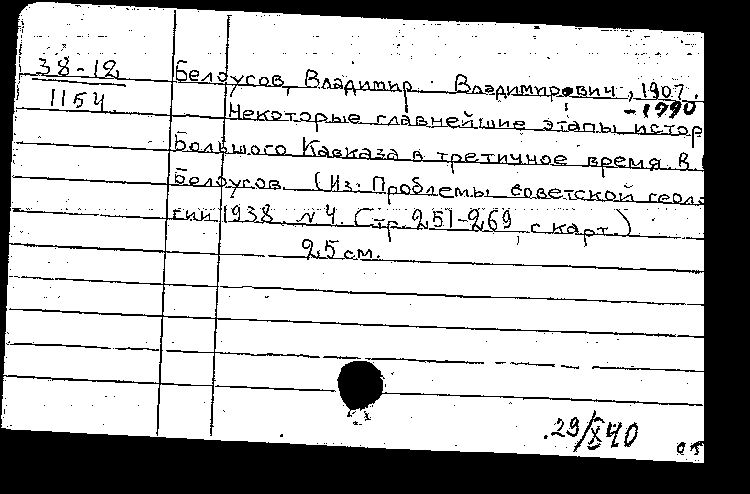 38-12
1154
Белоусов, Владимир Владимирович, 1907.
-1990
Некоторые главнейшие этапы истор
Большого Кавказа в третичное время. В.
Белоусов. (Из: Проблемы советской геоло
гии 1938. №4. Стр. 251-269, с карт.)
25 см.
29/X 40